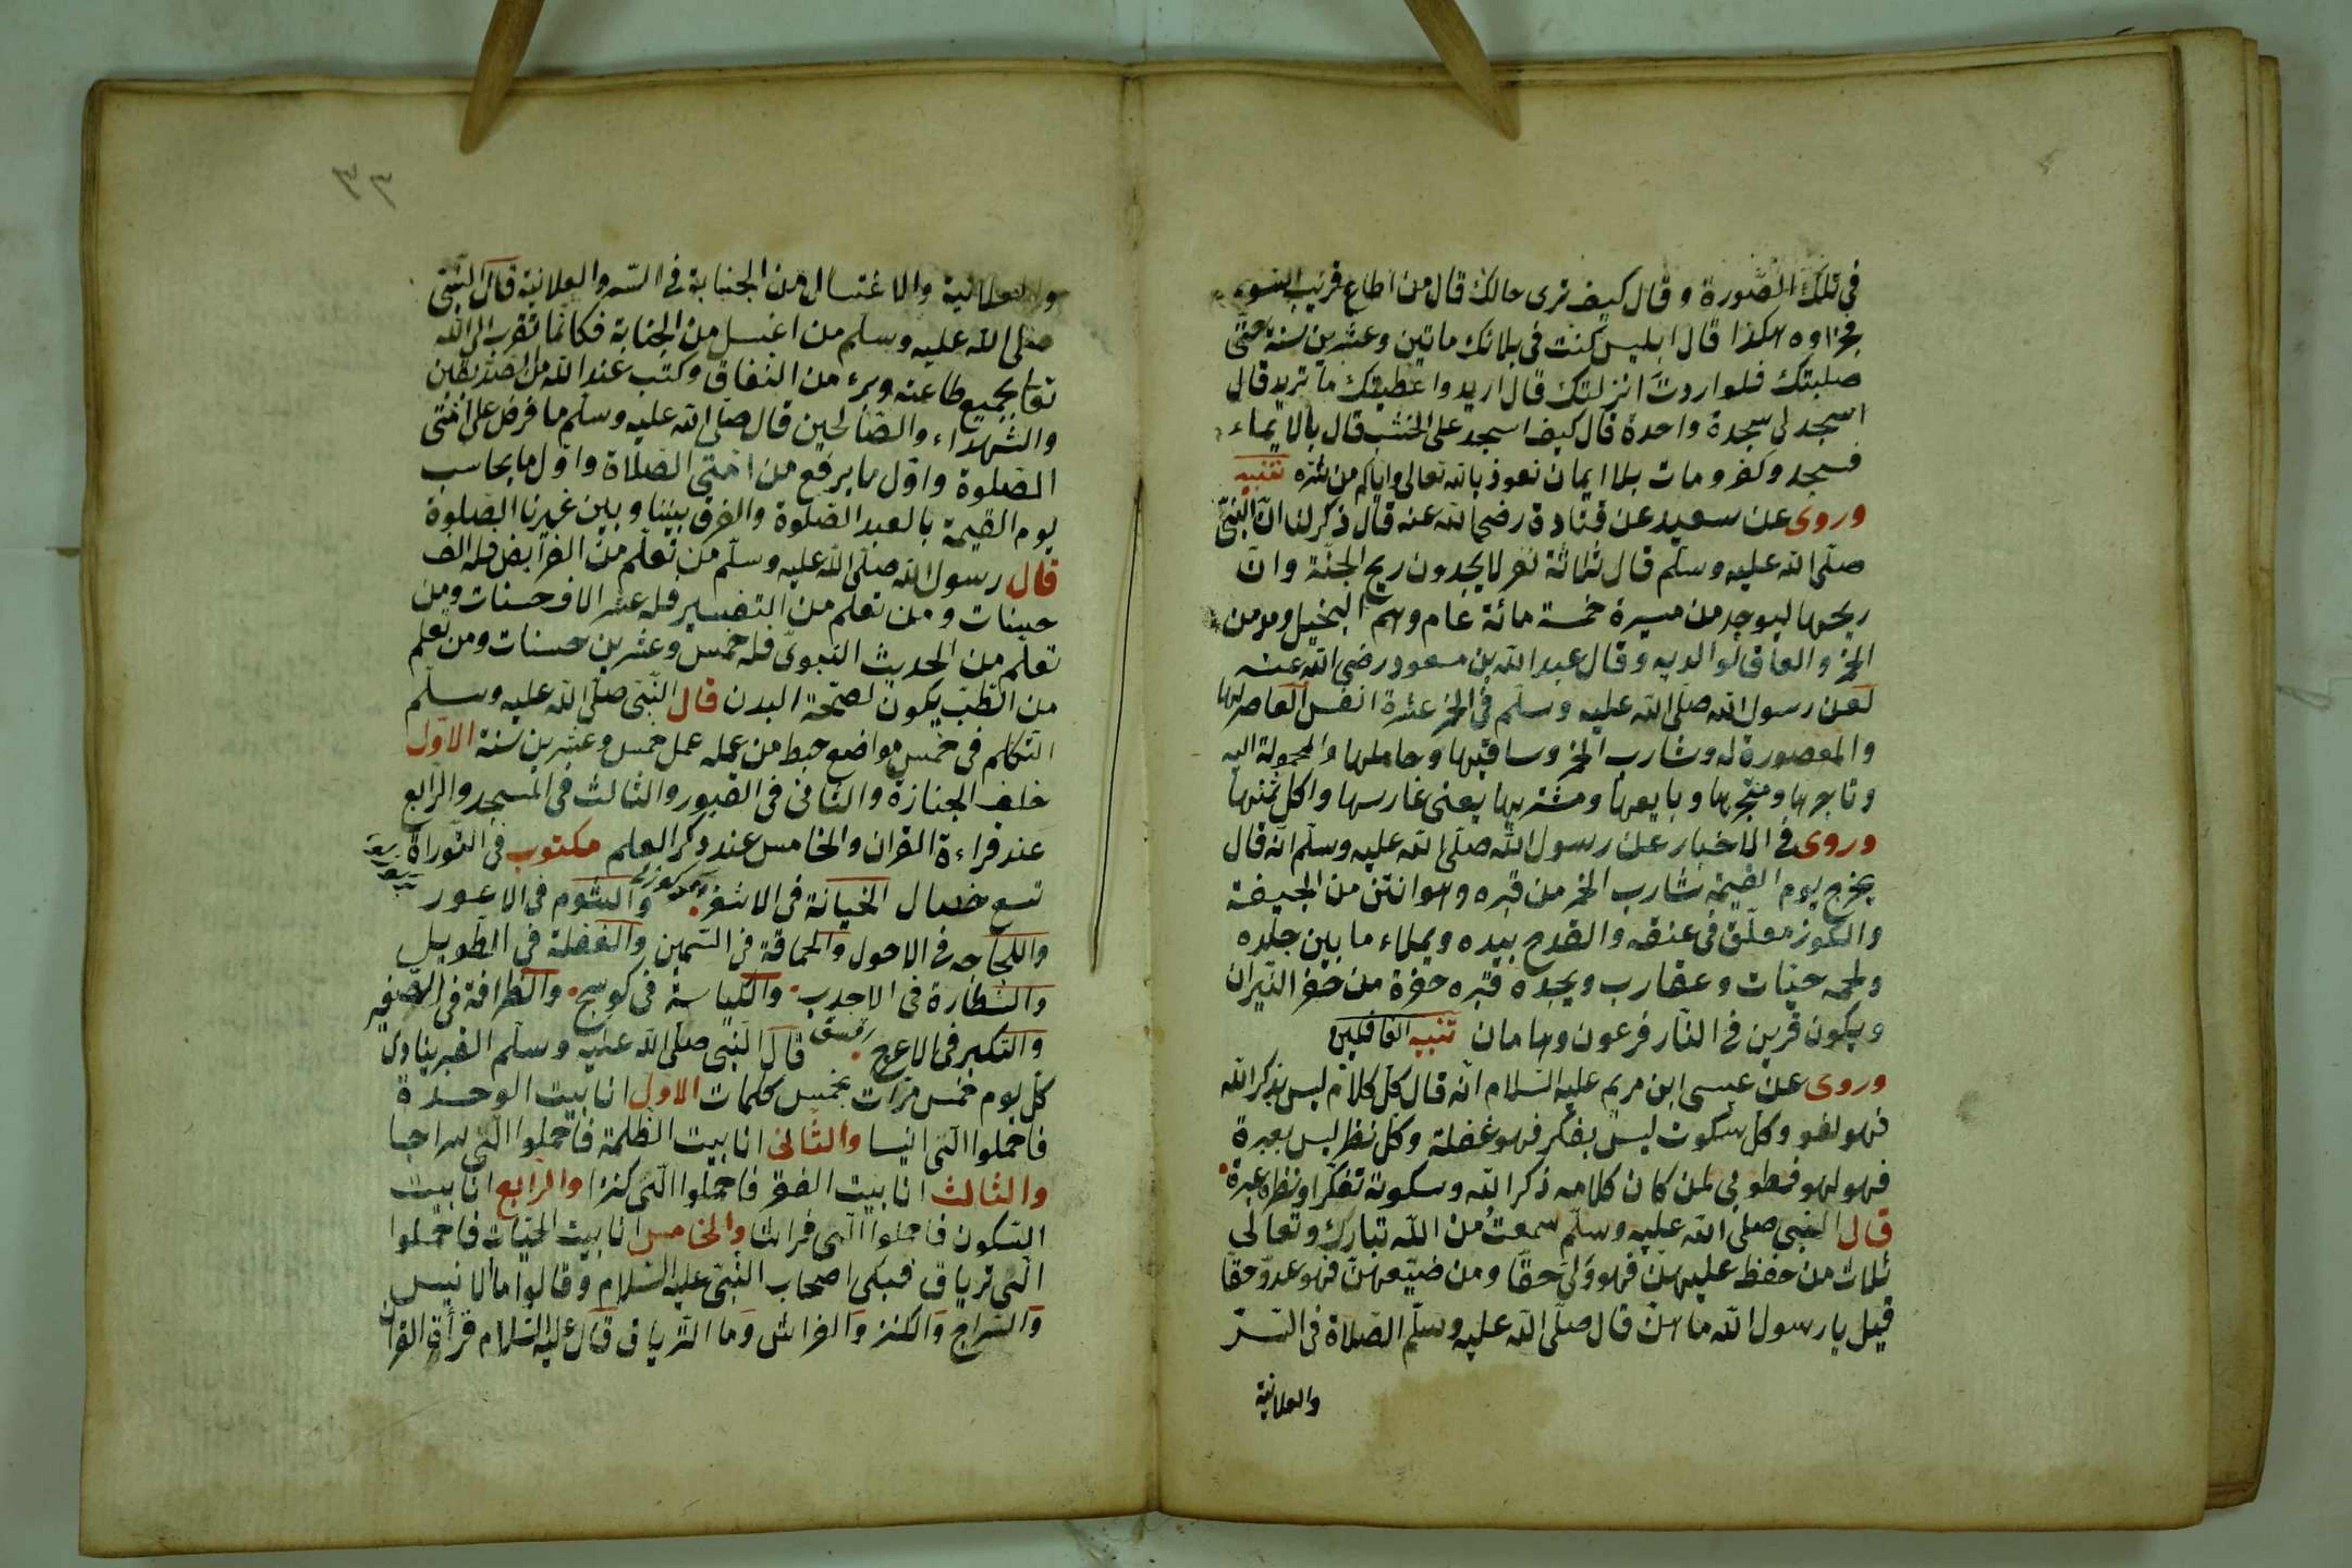 في تلك الصّورة وقال كيف ترى حالك قال من اطاع قريب السّوء
فجزاوه هكذا قال ابليس كنت في بلائك ماتين وعشرين سنة حتّى
صلبتك فلو اردت انزلتك قال اريد واعطيتك ما تريد قال
اسجد لى سجدة واحدة قال كيف اسجد على الخشب قال بالايماء
فسجد وكفر ومات بلا ايمان نعوذ بالله تعالى واياكم من شرّه تنبيه
وروى عن سعيد عن قتادة رضى الله عنه قال ذكر لنا انّ النّبىّ
صلّى الله عليه وسلّم قال ثلاثة نفر لا يجدون ريح الجنّة وانّ
ريحها ليوجد من مسيرة خمسة مائة عام وهم البخيل ومدمن
الخمر والعاق لوالديه وقال عبد الله بن مسعود رضى الله عنه
لعن رسول الله صلّى الله عليه وسلّم في الخمر عشرة انفس العاصر لها
والمعصورة له وشارب الخمر وساقيها وحاملها والمحمولة اليه
وتاجرها ومتجرها وبايعها ومشتريها يعنى غارسها واكل ثمنها
وروى في الاخبار عن رسول الله صلّى الله عليه وسلّم انّه قال
يخرج يوم القيمة شارب الخمر من قبره وهو انتن من الجيفة
والكوز معلّق في عنقه والقدح بيده ويملاء ما بين جلده
ولحمه حيّات وعقارب ويجد قبره حفرة من حفر النّيران
ويكون قرين في النّار فرعون وهامان تنبيه الغافلين
وروى عن عيسى ابن مريم عليه السّلام انّه قال كلّ كلام ليس بذكر الله
فهو لغو وكلّ سكوت ليس بفكر فهو غفلة وكلّ نظر ليس بعبرة
فهو لهو فطوبى لمن كان كلامه ذكر الله وسكوته تفكّرا ونظره عبرة
قال النبى صلّى الله عليه وسلّم سمعت من الله تبارك وتعالى
ثلاث من حفظ عليهنّ فهو ولىّ حقّا ومن ضيّعهنّ فهو عدوّ حقّا
قيل يا رسول الله ما هنّ قال صلّى الله عليه وسلّم الصّلاة في السّرّ
والعلانية
٣٣
والعلانية والاغتسال من الجنابة في السّر والعلانية قال النّبى
صلّى الله عليه وسلّم من اغتسل من الجنابة فكانّما تقرب الى الله
تعالى بجميع طاعته وبرء من النفاق وكتب عند الله من الصّدّيقين
والشّهداء والصّالحين قال صلّى الله عليه وسلّم ما فرض على امّتى
الصّلوة واوّل ما يرفع من امّتى الصّلاة واوّل ما يحاسب
يوم القيمة بالعبد الصّلوة والفرق بيننا وبين غيرنا الصّلوة
قال رسول الله صلّى الله عليه وسلّم من تعلّم من الفرايض فله الف
حسنات ومن تعلم من التفسير فله عشر الاف حسنات ومن
تعلّم من الحديث النّبوىّ فله خمس وعشرين حسنات ومن تعلم
من الطّبّ يكون لصّحّة البدن قال النّبى صلّى الله عليه وسلم
التّكلم في خمس مواضع حبط من عمله عمل خمس وعشرين سنة الاوّل
خلف الجنازة والثّانى في القبور والثالث في المسجد والرّابع
عند قراءة القران والخامس عند ذكر العلم مكتوب في التّوراة
تسع خصال الخيانة في الاشقر والشّوم في الاعور
واللّجاجه في الاحول والحماقة في السّمين والغفلة في الطّويل
والشّطارة في الاحدب والكياسة في كوسج والظّرافة في الصّغير
والتّكبر في الاعرج قال النّبى صلّى الله عليه وسلّم القبر ينادى
كلّ يوم خمس مرّات بخمس كلمات الاوّل انا بيت الوحدة
فاحملوا الّتى انيسا والثّانى انا بيت الظّلمة فاحملوا الّتى سراجا
والثّالث انا بيت الفقر فاحملوا الّتى كنزا والرّابع انا بيت
السّكون فاحملوا الّتى فراشا والخامس انا بيت الحيّات فاحملوا
الّتى ترياق فبكى اصحاب النّبى عليه السّلام وقالوا ما الانيس
والسّراج والكنز والفراش وما التّرياق قال عليه السّلام قرأة القران